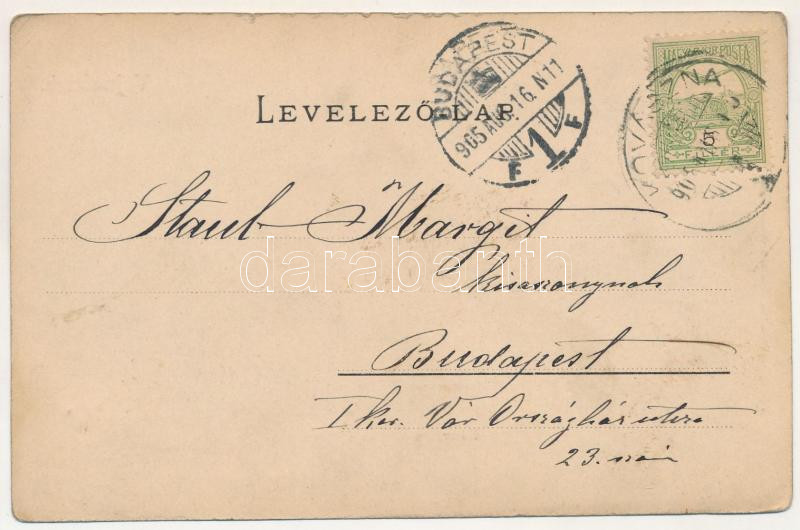 BUDAPEST
905 AUG. 16. N11
F 1 F
MAGYAR KIR. POSTA
5
FILLÉR
KOVÁSZNA
LEVELEZŐ-LAP.
Staub Margit
kisasszonynak
darabanth
Budapest
I ker. Vár Országház utcza
23. szám